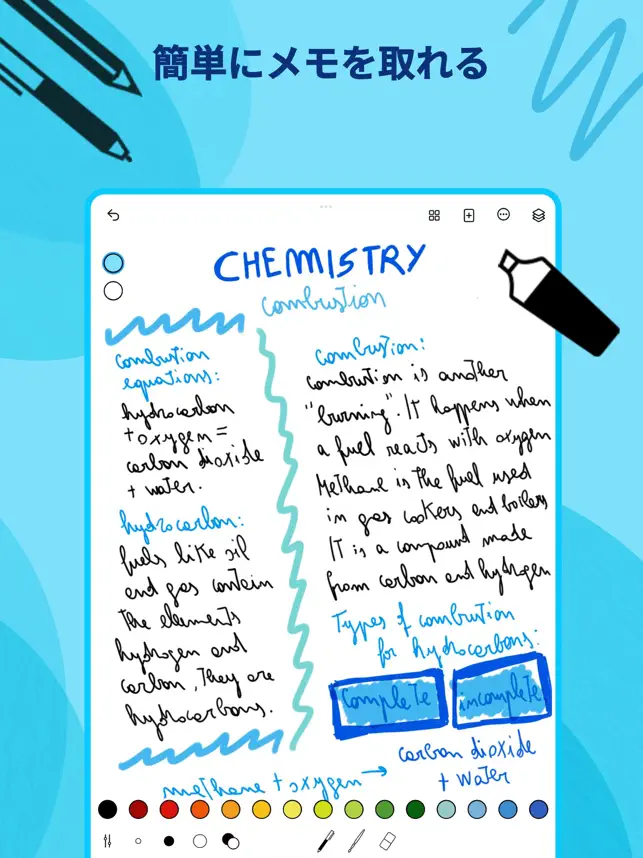 簡単にメモを取れる
CHEMISTRY
combustion
combustion
equations:
hydrocarbon
+ oxygen =
carbon dioxide
+ water.
hydrocarbon:
fuels like oil
and gas contain
the elements
hydrogen and
carbon, they are
hydrocarbons.
combustion:
combustion is another
"burning". It happens when
a fuel reacts with oxygen
Methane is the fuel used
in gas cookers and boilers
It is a compound made
from carbon and hydrogen
Types of combustion
for hydrocarbons:
complete
incomplete
methane + oxygen →
carbon dioxide
+ water